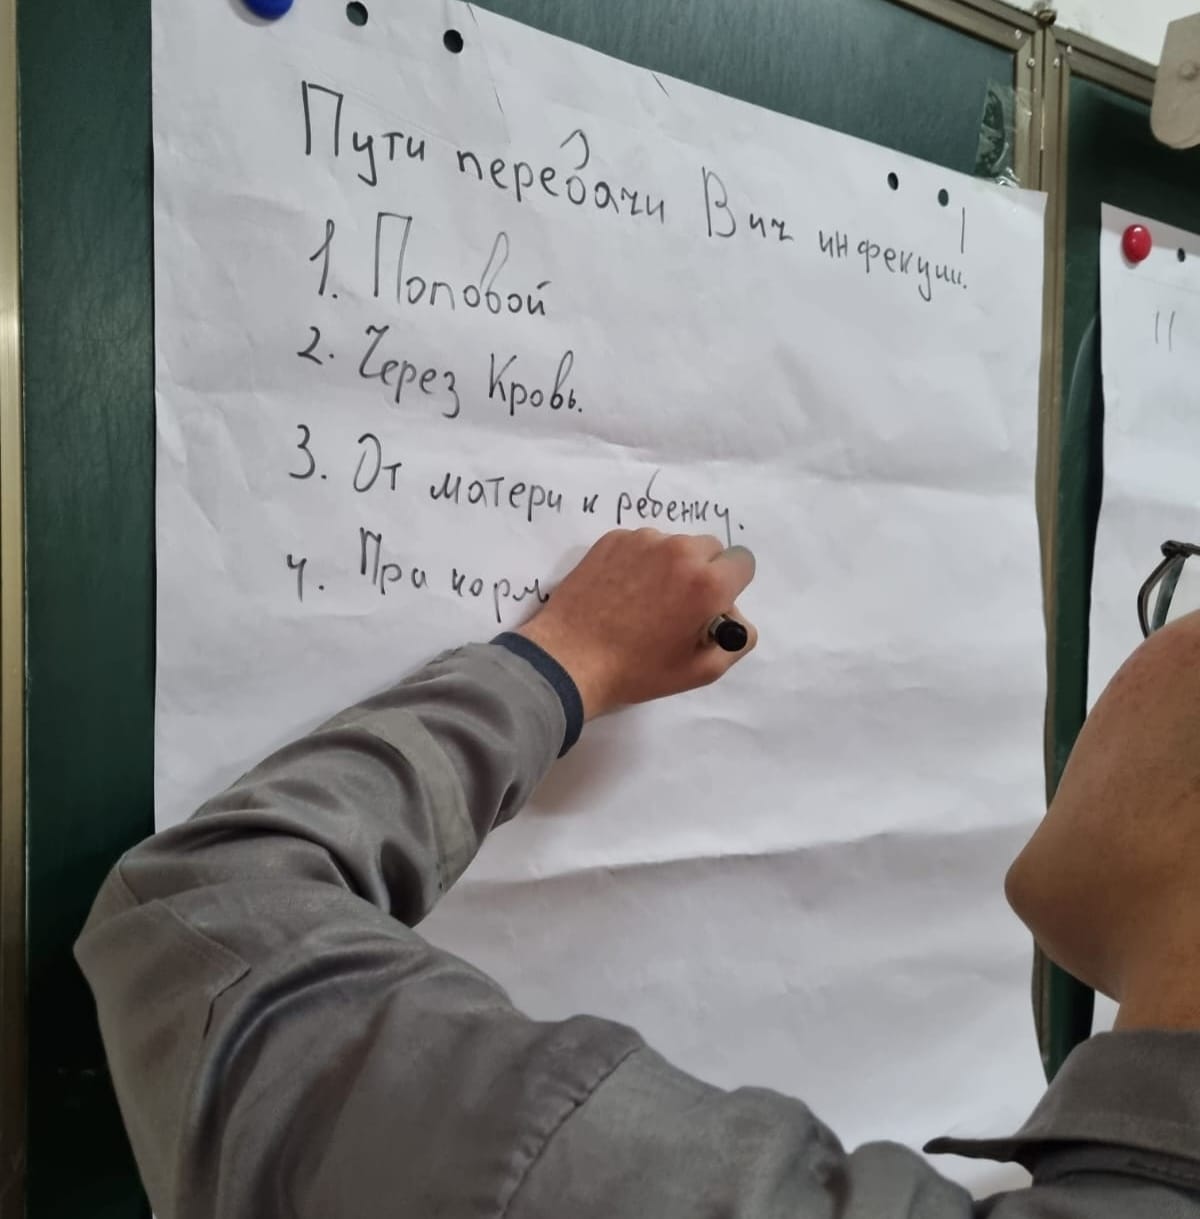 Пути передачи Вич инфекции.
1. Половой
2. Через Кровь.
3. От матери к ребенку.
4. При корм